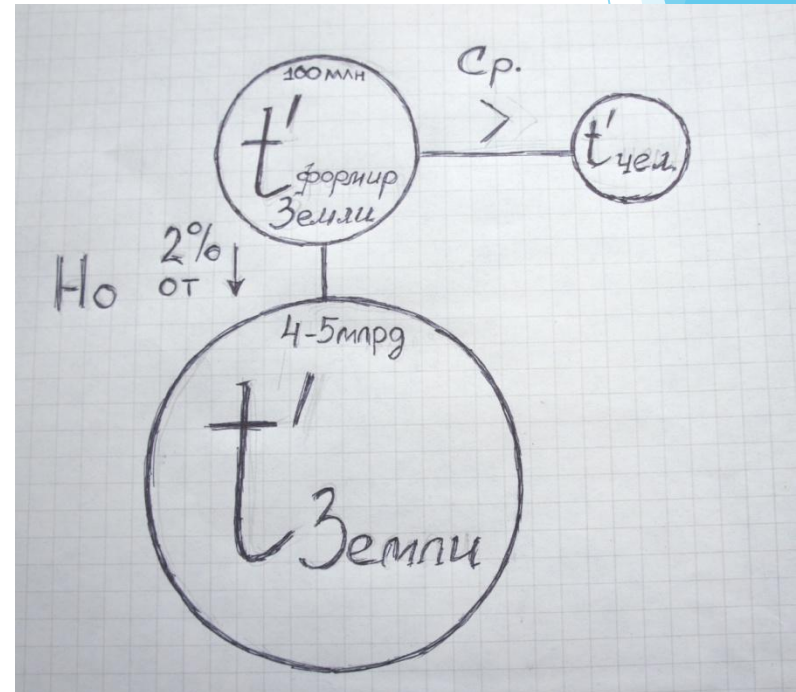 100 млн
t'
формир
Земли
Ср.
>
t' чел.
Но
2%
от
4-5млрд
t'
Земли